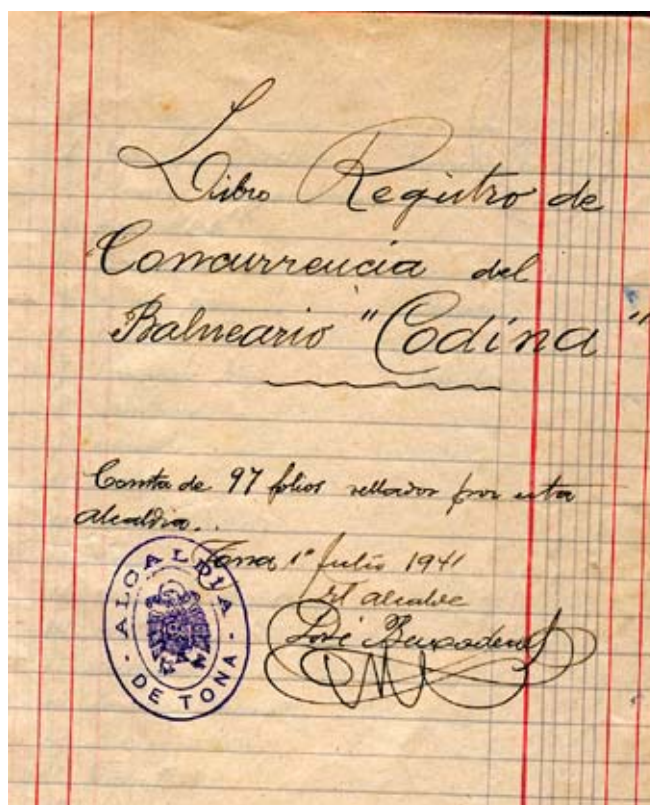 Libro Registro de
Concurrencia del
Balneario "Codina"
Consta de 97 folios sellados por esta
alcaldia.
Tona 1º Julio 1941
El alcalde
José
ALCALDIA
DE TONA